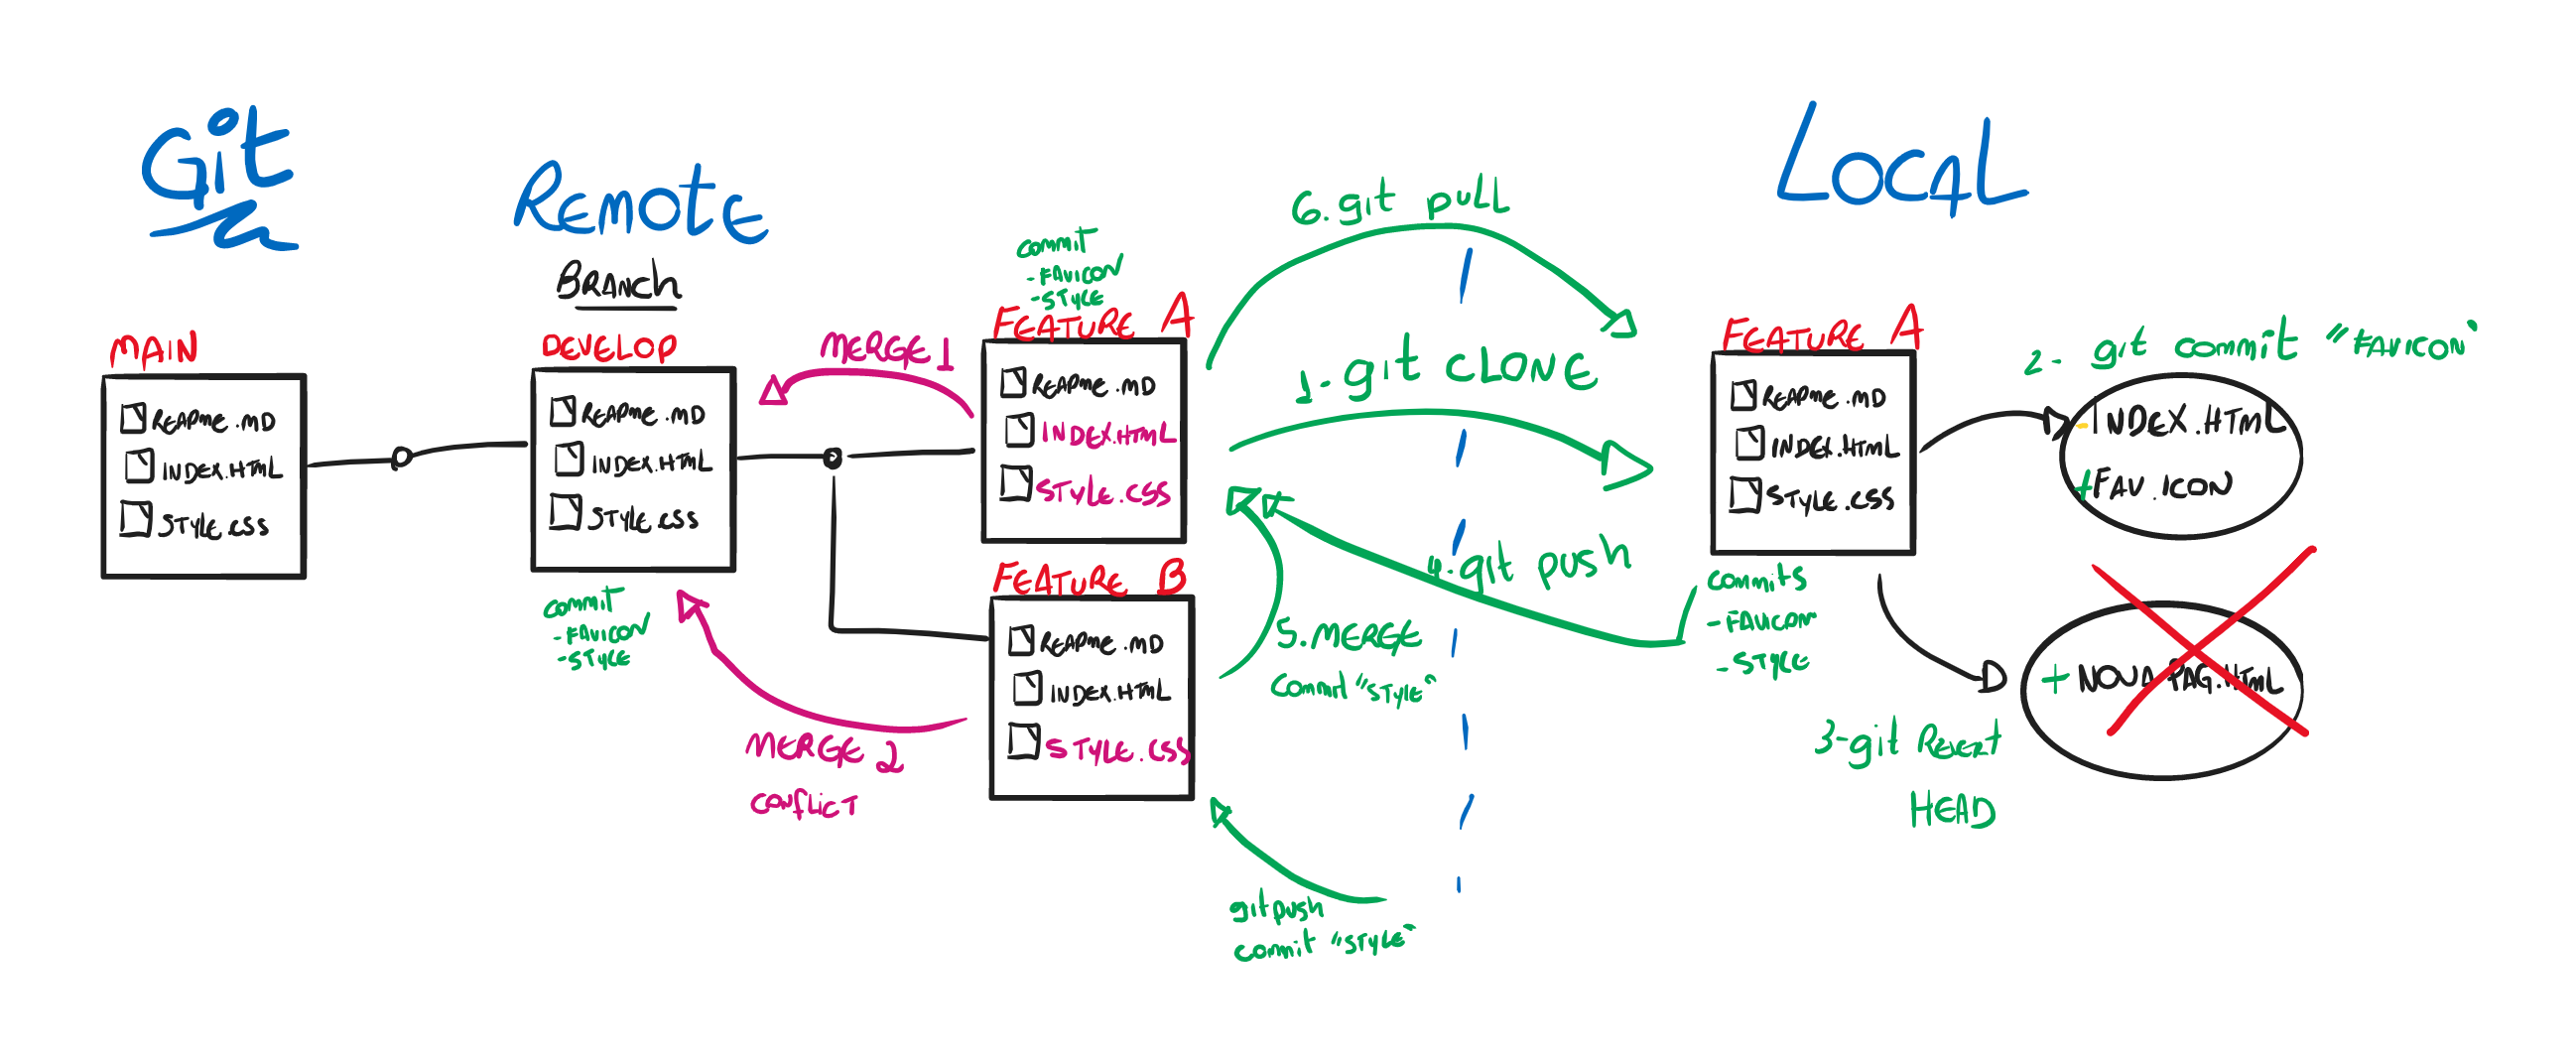 Git
REMOTE
BRANCH
MAIN
README.MD
INDEX.HTML
STYLE.CSS
DEVELOP
README.MD
INDEX.HTML
STYLE.CSS
commit
- FAVICON
- STYLE
MERGE 1
MERGE 2
CONFLICT
commit
- FAVICON
- STYLE
FEATURE A
README.MD
INDEX.HTML
STYLE.CSS
FEATURE B
README.MD
INDEX.HTML
STYLE.CSS
6. git pull
1- git CLONE
4. git push
5. MERGE
commit "STYLE"
git push
commit "STYLE"
LOCAL
FEATURE A
README.MD
INDEX.HTML
STYLE.CSS
commits
- FAVICON
- STYLE
2- git commit "FAVICON"
- INDEX.HTML
+ FAV.ICON
+ NOVA PAG.HTML
3- git REVERT
HEAD